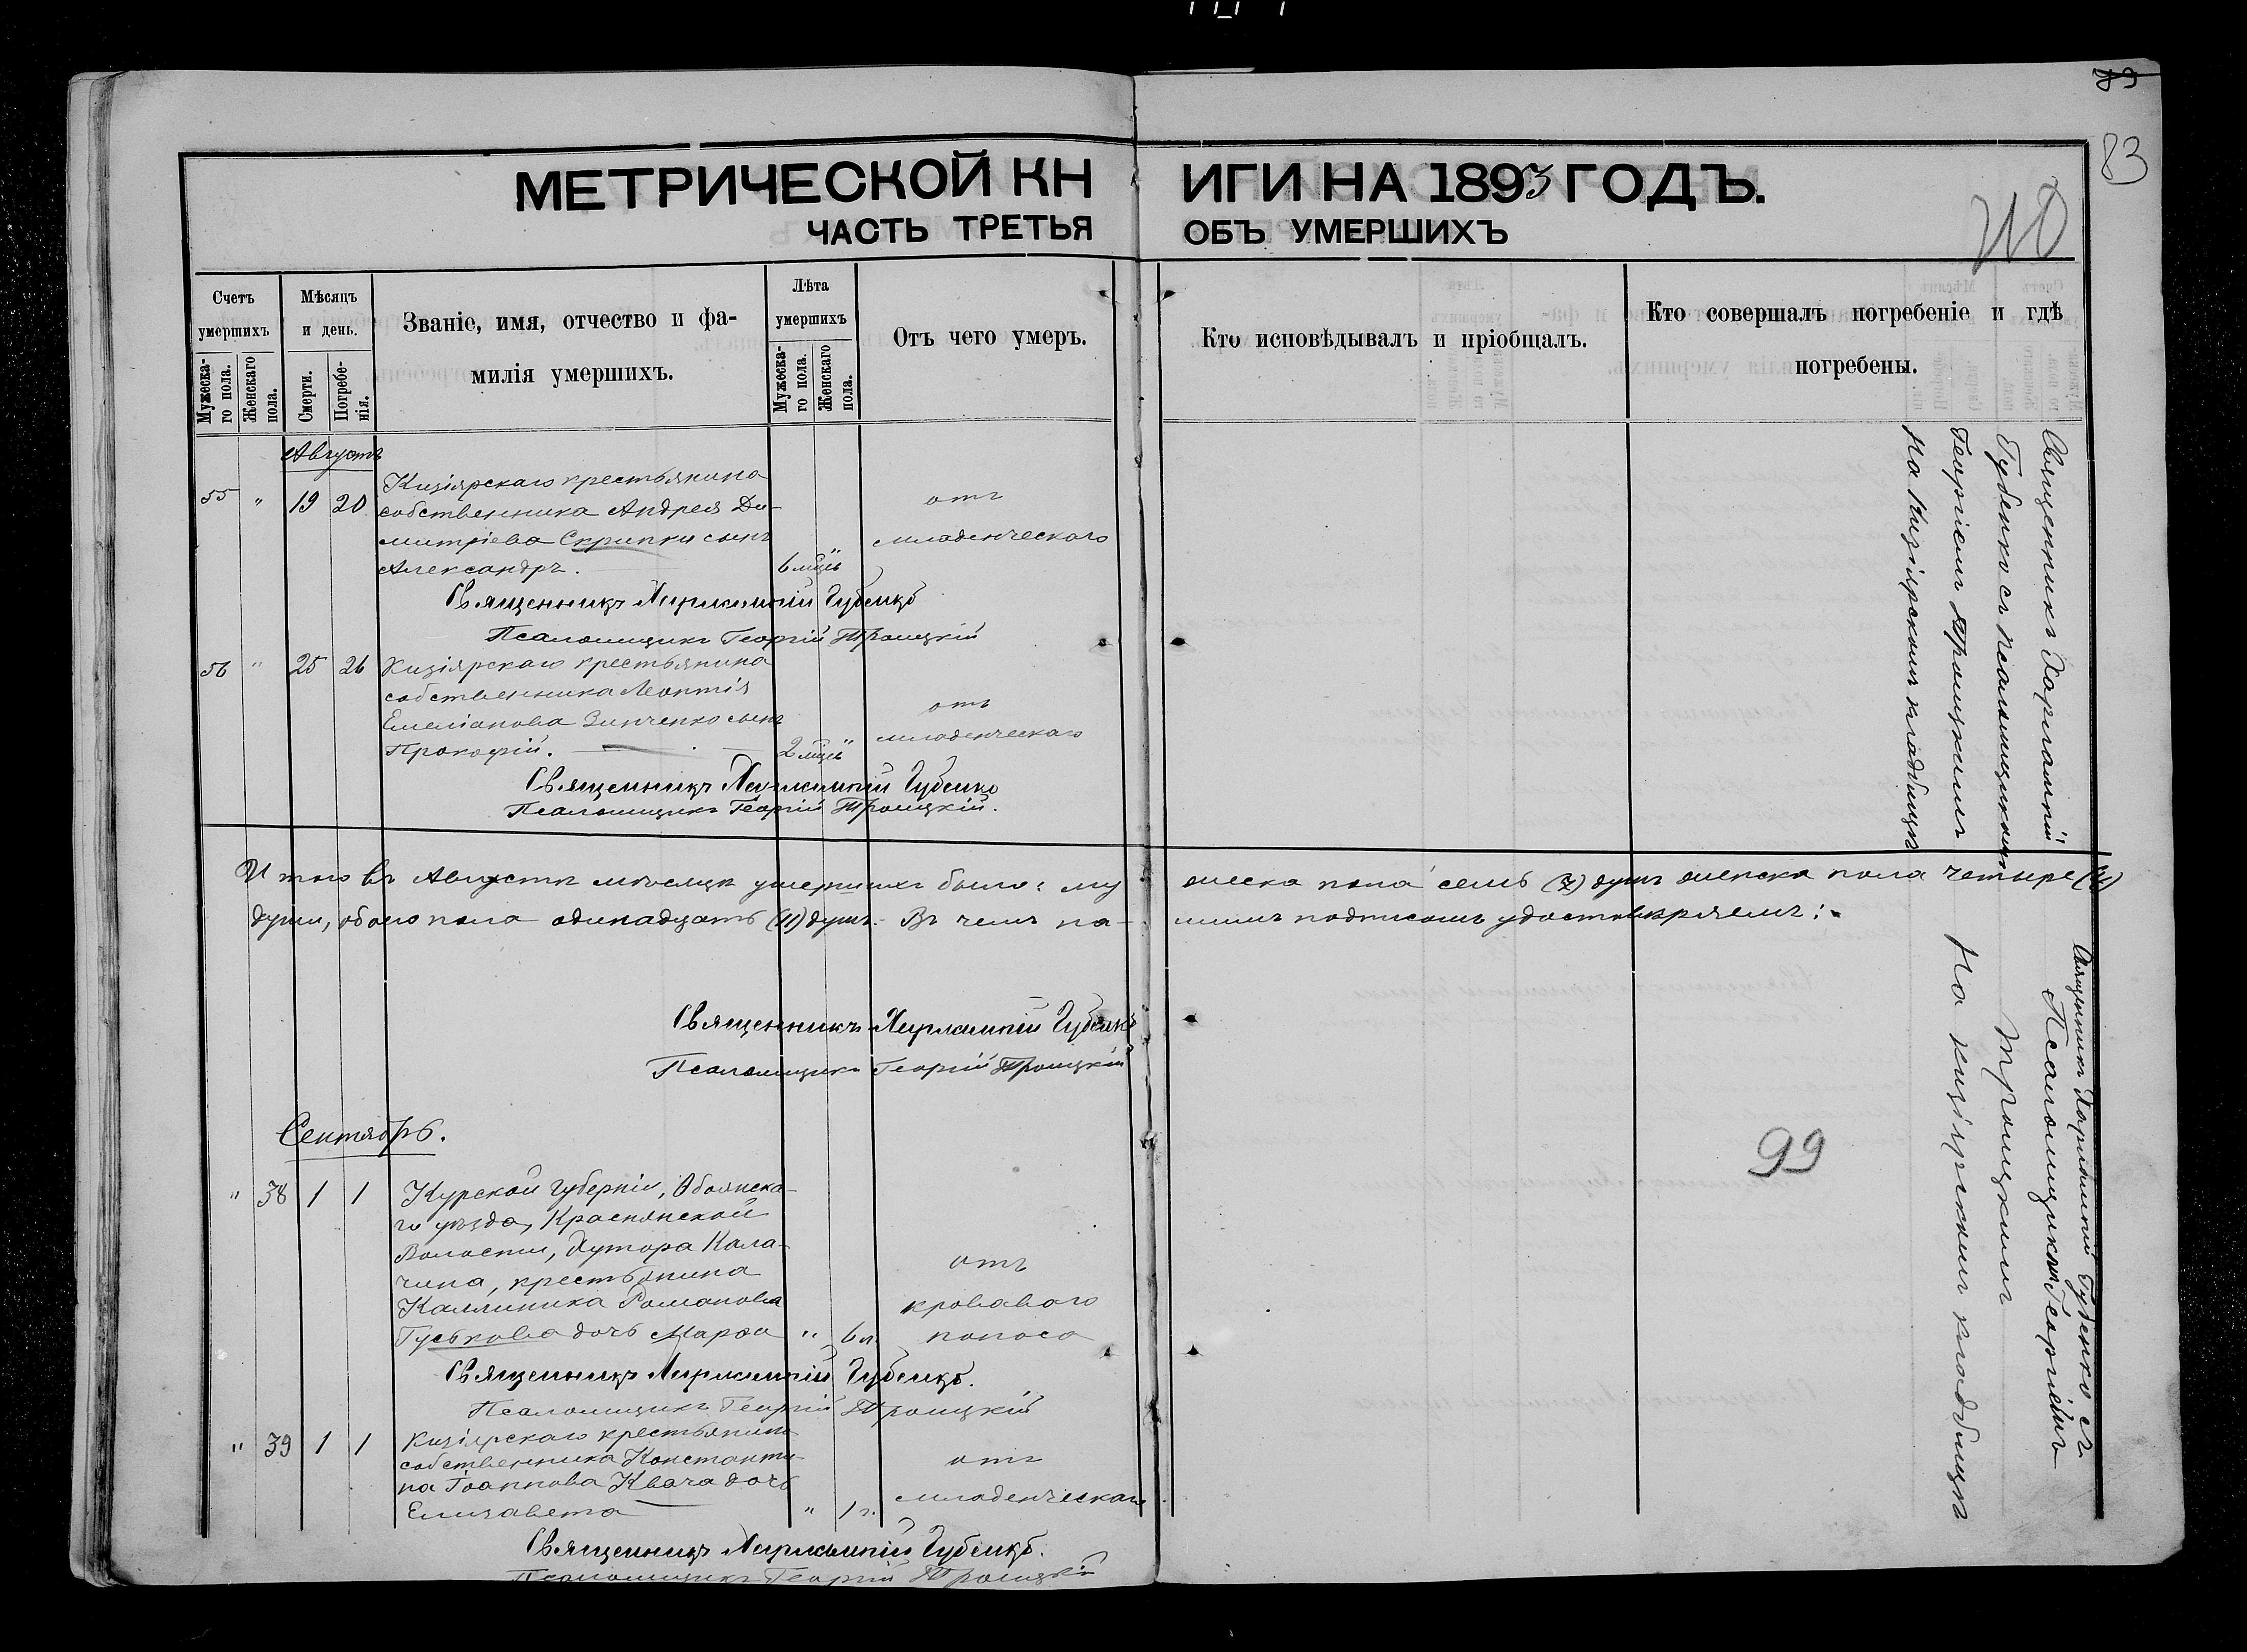 83
83
МЕТРИЧЕСКОЙ КНИГИ НА 1893 ГОДЪ.
ЧАСТЬ ТРЕТЬЯ ОБЪ УМЕРШИХЪ
Счетъ умершихъ
Мужеска-
го пола.
Женскаго
пола.
Мѣсяцъ
и день.
Смерти.
Погребе-
нія.
Званіе, имя, отчество и фа-
милія умершихъ.
Лѣта
умершихъ
Мужеска-
го пола.
Женскаго
пола.
Отъ чего умеръ.
Кто исповѣдывалъ и пріобщалъ.
Кто совершалъ погребеніе и гдѣ
погребены.
Августъ
55 " 19 20
Кизіярскаго крестьянина
собственника Андрея Ди-
митріева Скрипки сынъ
Александръ. 6 мцевъ
отъ
младенческаго
Священникъ Харлампій Губенко
Псаломщикъ Георгій Троицкій
56 " 25 26
Кизіярскаго крестьянина
собственника Леонтія
Емеліанова Зинченко сынъ
Прокофій. 2 мцевъ
отъ
младенческаго
Священникъ Харлампій Губенко
Псаломщикъ Георгій Троицкій.
Священникъ Харлампій
Губенко съ псаломщикомъ
Георгіемъ Троицкимъ
На Кизіярскомъ кладбищѣ
Итого въ Августѣ мѣсяцѣ умершихъ было: мужеска пола семь (7) душъ женска пола четыре (4)
души, обоего пола одинадцать (11) душъ. Въ чемъ на-шимъ подписомъ удостовѣряемъ:
Священникъ Харлампій Губенко
Псаломщикъ Георгій Троицкій
Сентябрь.
" 38 1 1
Курской губерніи, Обоянска-
го уѣзда, Краснянской
Волости, Хутора Кала-
чина, крестьянина
Каллиника Романова
Гуськова дочь Марфа " 6 л.
отъ
кроваваго
поноса
Священникъ Харлампій Губенко.
Псаломщикъ Георгій Троицкій
" 39 1 1
Кизіярскаго крестьянина
собственника Константи-
на Іоаннова Квача дочь
Елизавета " 1 г.
отъ
младенческаго
Священникъ Харлампій Губенко.
Псаломщикъ Георгій Троицкій
99
Священникъ Харлампій Губенко съ
Псаломщикомъ Георгіемъ
Троицкимъ
На кизіярскомъ кладбищѣ